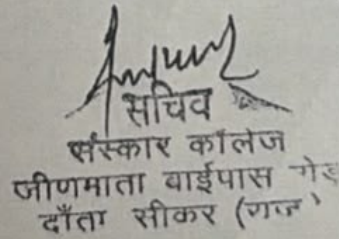 सचिव
संस्कार कॉलेज
जीणमाता बाईपास रोड
दाँता सीकर (राज)